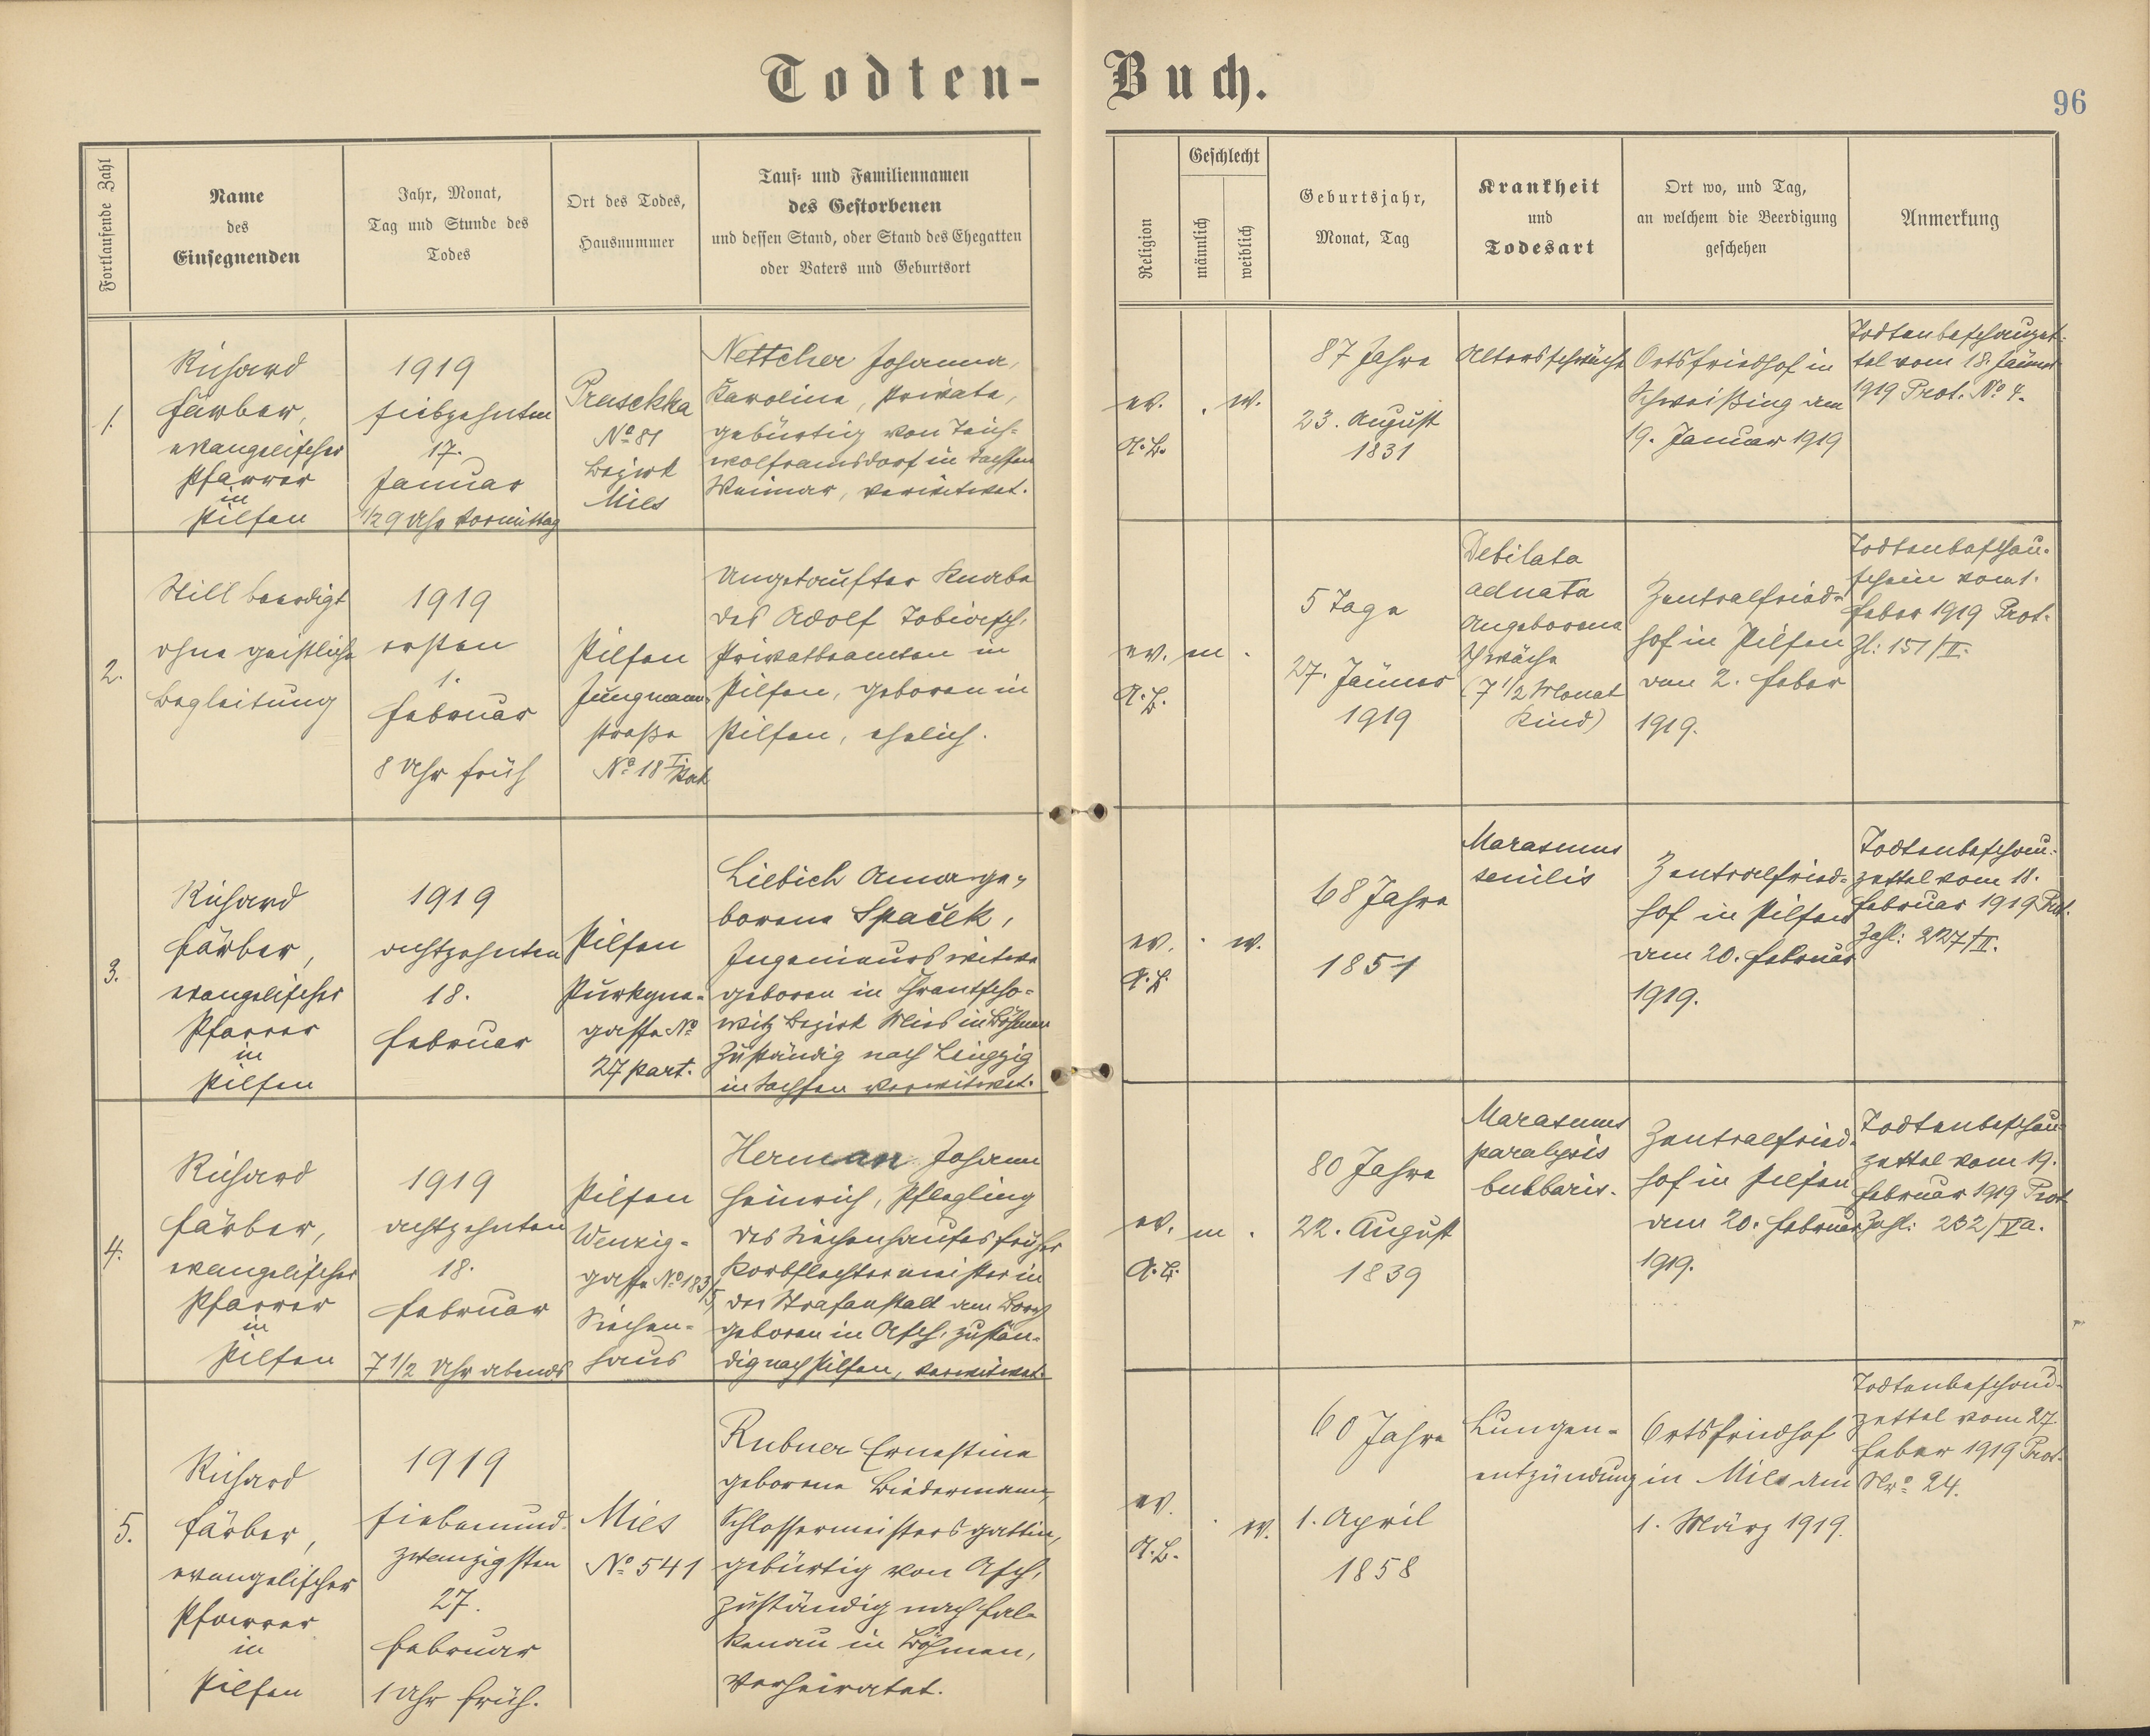 Todten-Buch.
96
Fortlaufende Zahl
Name
des
Einsegnenden
Jahr, Monat,
Tag und Stunde des
Todes
Ort des Todes,
Hausnummer
Tauf- und Familiennamen
des Gestorbenen
und dessen Stand, oder Stand des Ehegatten
oder Vaters und Geburtsort
Religion
Geschlecht
männlich
weiblich
Geburtsjahr,
Monat, Tag
Krankheit
und
Todesart
Ort wo, und Tag,
an welchem die Beerdigung
geschehen
Anmerkung
1.
Richard
Färber,
evangelischer
Pfarrer
in
Pilsen
1919
siebzehnten
17.
Januar
1/2 9 Uhr Vormittag
Pruschka
No 81
Bezirk
Mies
Nettcher Johanna,
Karolina, Private,
gebürtig von Teich-
wolframsdorf in Sachsen
Weimar, verwitwet.
ev.
A.B.
. w.
87 Jahre
23. August
1831
Altersschwäche
Ortsfriedhof in
Schweißing am
19. Januar 1919
Todtenbeschauzet-
tel vom 18. Jänner
1919 Prot. No 4.
2.
Still beerdigt
ohne geistliche
Begleitung
1919
ersten
1.
Februar
8 Uhr früh
Pilsen
Jungmann-
straße
No 18
Ungetaufter Knabe
des Adolf Tobiasch,
Privatbeamten in
Pilsen, geboren in
Pilsen, ehelich.
ev.
A.B.
m .
5 Tage
27. Jänner
1919
Debilata
adnata
Angeborene
Schwäche
(7 1/2 Monat
Kind)
Zentralfried-
hof in Pilsen
den 2. Feber
1919.
Todtenbeschau-
schein vom 1.
Feber 1919 Prot.
Zl: 151/II.
3.
Richard
Färber,
evangelischer
Pfarrer
in
Pilsen
1919
achtzehnten
18.
Februar
Pilsen
Purkyne-
gasse No
27 part.
Liebich Anna ge-
borene Spaček,
Ingenieurswitwe
geboren in
witz Bezirk Mies in Böhmen
Zuständig nach Leipzig
in Sachsen verwitwet.
ev.
A.B.
. w.
68 Jahre
1851
Marasmus
senilis
Zentralfried-
hof in Pilsen
am 20. Februar
1919.
Todtenbeschau-
zettel vom 18.
Februar 1919 Prot.
Zahl: 227/II.
4.
Richard
Färber,
evangelischer
Pfarrer
in
Pilsen
1919
achtzehnten
18.
Februar
7 1/2 Uhr abends
Pilsen
Wenzig-
gasse No 183/5
Siechen-
haus
Herman Johann
Heinrich, Pflegling
des Siechenhauses früher
Korbflechtermeister in
der Strafanstalt am Bory
geboren in Asch, zustän-
dig nach Pilsen, verwitwet.
ev.
A.B.
m .
80 Jahre
22. August
1839
Marasmus
paralysis
bulbaris.
Zentralfried-
hof in Pilsen
am 20. Februar
1919.
Todtenbeschau-
zettel vom 19.
Februar 1919 Prot
Zahl: 232/Va.
5.
Richard
Färber,
evangelischer
Pfarrer
in
Pilsen
1919
siebenund-
zwanzigsten
27.
Februar
1 Uhr früh.
Mies
No 541
Rubner Ernestine
geborene Biedermann,
Schlossermeistersgattin,
gebürtig von Asch,
zuständig nach Fal-
kenau in Böhmen,
Verheiratet.
ev.
A.B.
. w.
60 Jahre
1. April
1858
Lungen-
entzündung
Ortsfriedhof
in Mies am
1. März 1919.
Todtenbeschau-
zettel vom 27.
Feber 1919 Prot.
Nro 24.